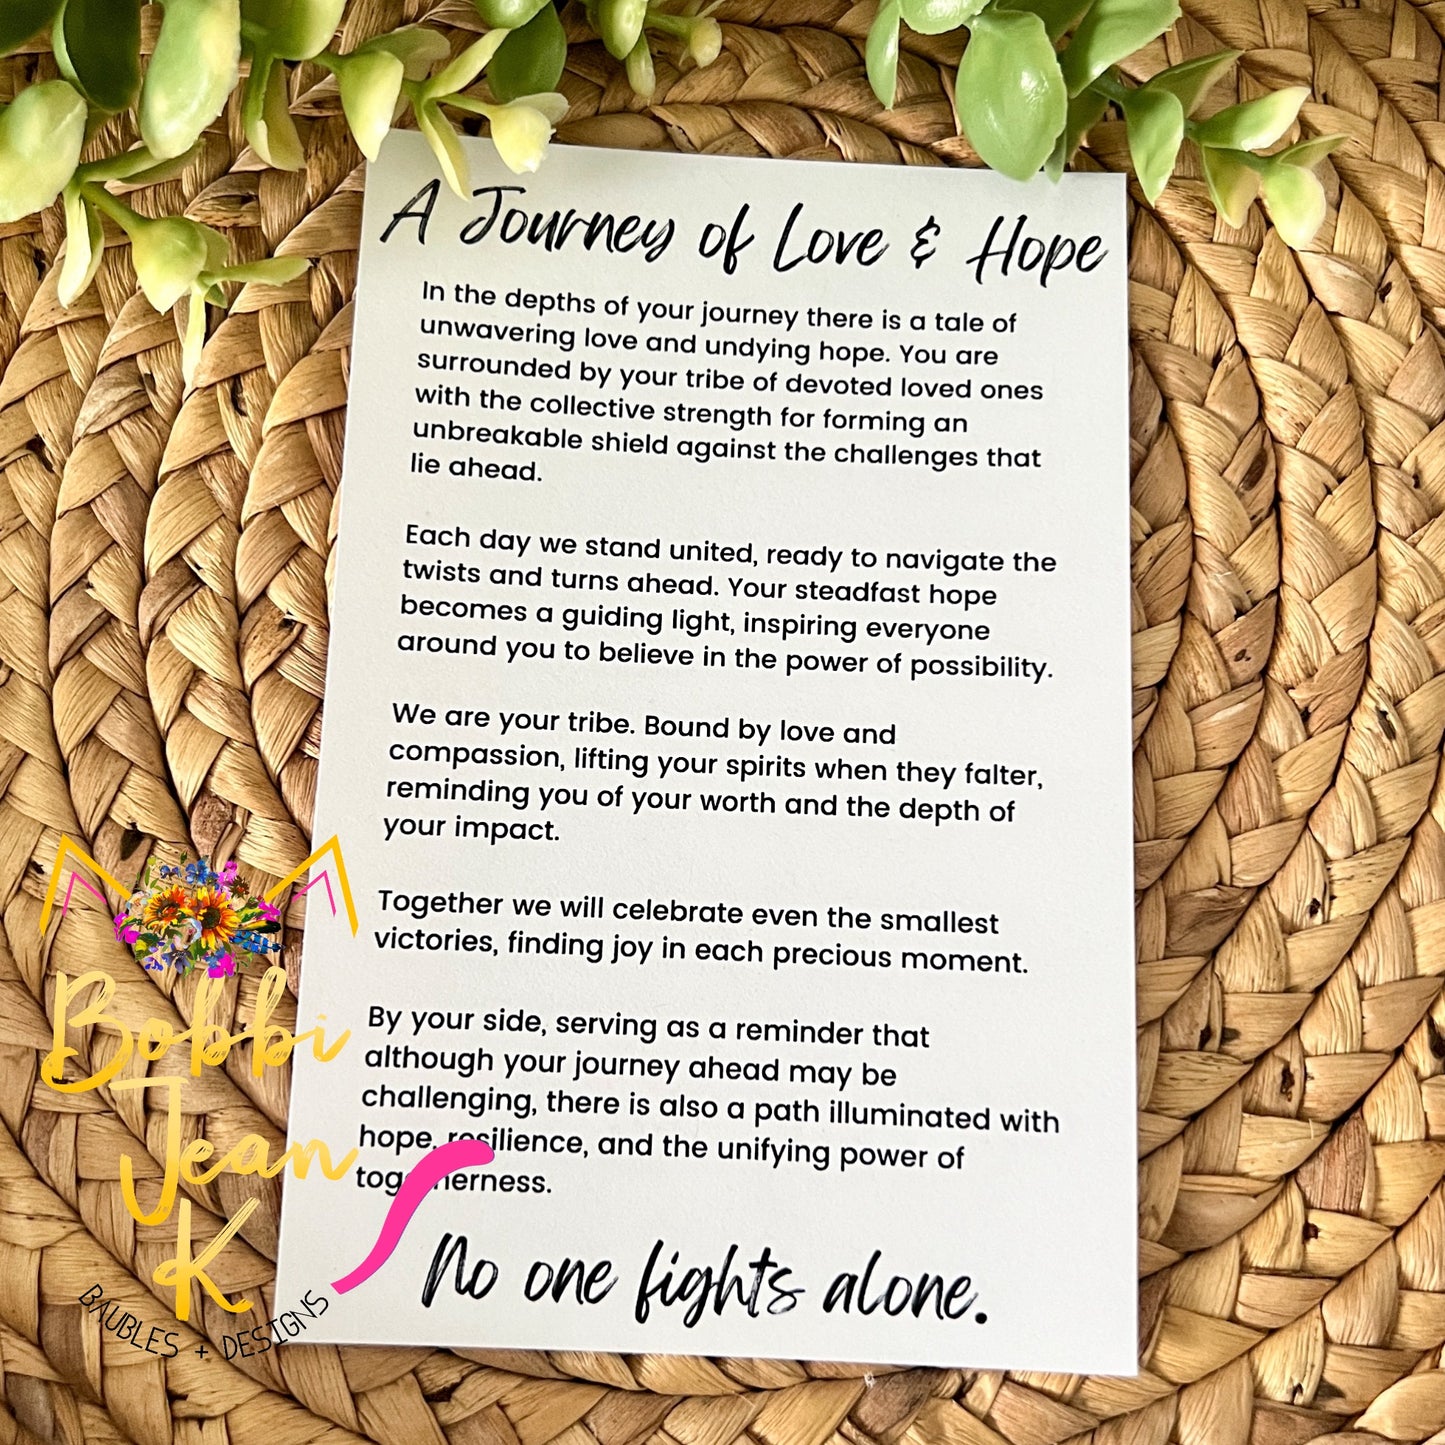 A Journey of Love & Hope
In the depths of your journey there is a tale of
unwavering love and undying hope. You are
surrounded by your tribe of devoted loved ones
with the collective strength for forming an
unbreakable shield against the challenges that
lie ahead.
Each day we stand united, ready to navigate the
twists and turns ahead. Your steadfast hope
becomes a guiding light, inspiring everyone
around you to believe in the power of possibility.
We are your tribe. Bound by love and
compassion, lifting your spirits when they falter,
reminding you of your worth and the depth of
your impact.
Together we will celebrate even the smallest
victories, finding joy in each precious moment.
By your side, serving as a reminder that
although your journey ahead may be
challenging, there is also a path illuminated with
hope, resilience, and the unifying power of
togetherness.
No one fights alone.
Bobbi
Jean
K
BAUBLES + DESIGNS